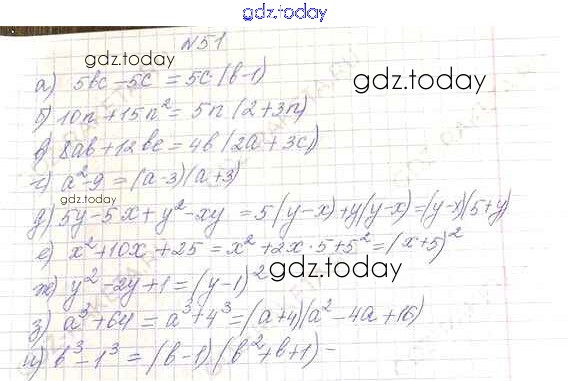 gdz.today
№51
gdz.today
а) 5bc - 5c = 5c(b-1)
gdz.today
б) 10n + 15n² = 5n(2+3n)
в) 8ab + 12bc = 4b(2a+3c)
г) a² - 9 = (a-3)(a+3)
gdz.today
д) 5y - 5x + y² - xy = 5(y-x) + y(y-x) = (y-x)(5+y)
е) x² + 10x + 25 = x² + 2x·5 + 5² = (x+5)²
ж) y² - 2y + 1 = (y-1)²
gdz.today
з) a³ + 64 = a³ + 4³ = (a+4)(a² - 4a + 16)
и) b³ - 1³ = (b-1)(b² + b + 1) -